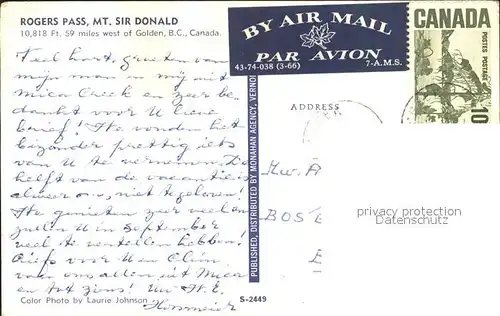 ROGERS PASS, MT. SIR DONALD
10,818 Ft. 59 miles west of Golden, B.C., Canada.
BY AIR MAIL
PAR AVION
43-74-038 (3-66) 7-A.M.S.
CANADA
POSTES POSTAGE
10
Veel hart. groeten van
mijn man en mij uit
Mica Creek en zeer be-
dankt voor U lieve
brief! We vonden het
bijzonder prettig iets
van U te vernemen. De
helft van de vacantie is
alweer om, niet te geloven!
We genieten zeer veel en
zullen U in September
veel te vertellen hebben!
Liefs voor U en
van ons allen uit Mica
en tot ziens! Uw
ADDRESS
Mw. A
BOS
PUBLISHED, DISTRIBUTED BY MONAHAN AGENCY, VERNON
privacy protection
Datenschutz
Color Photo by Laurie Johnson
S-2449